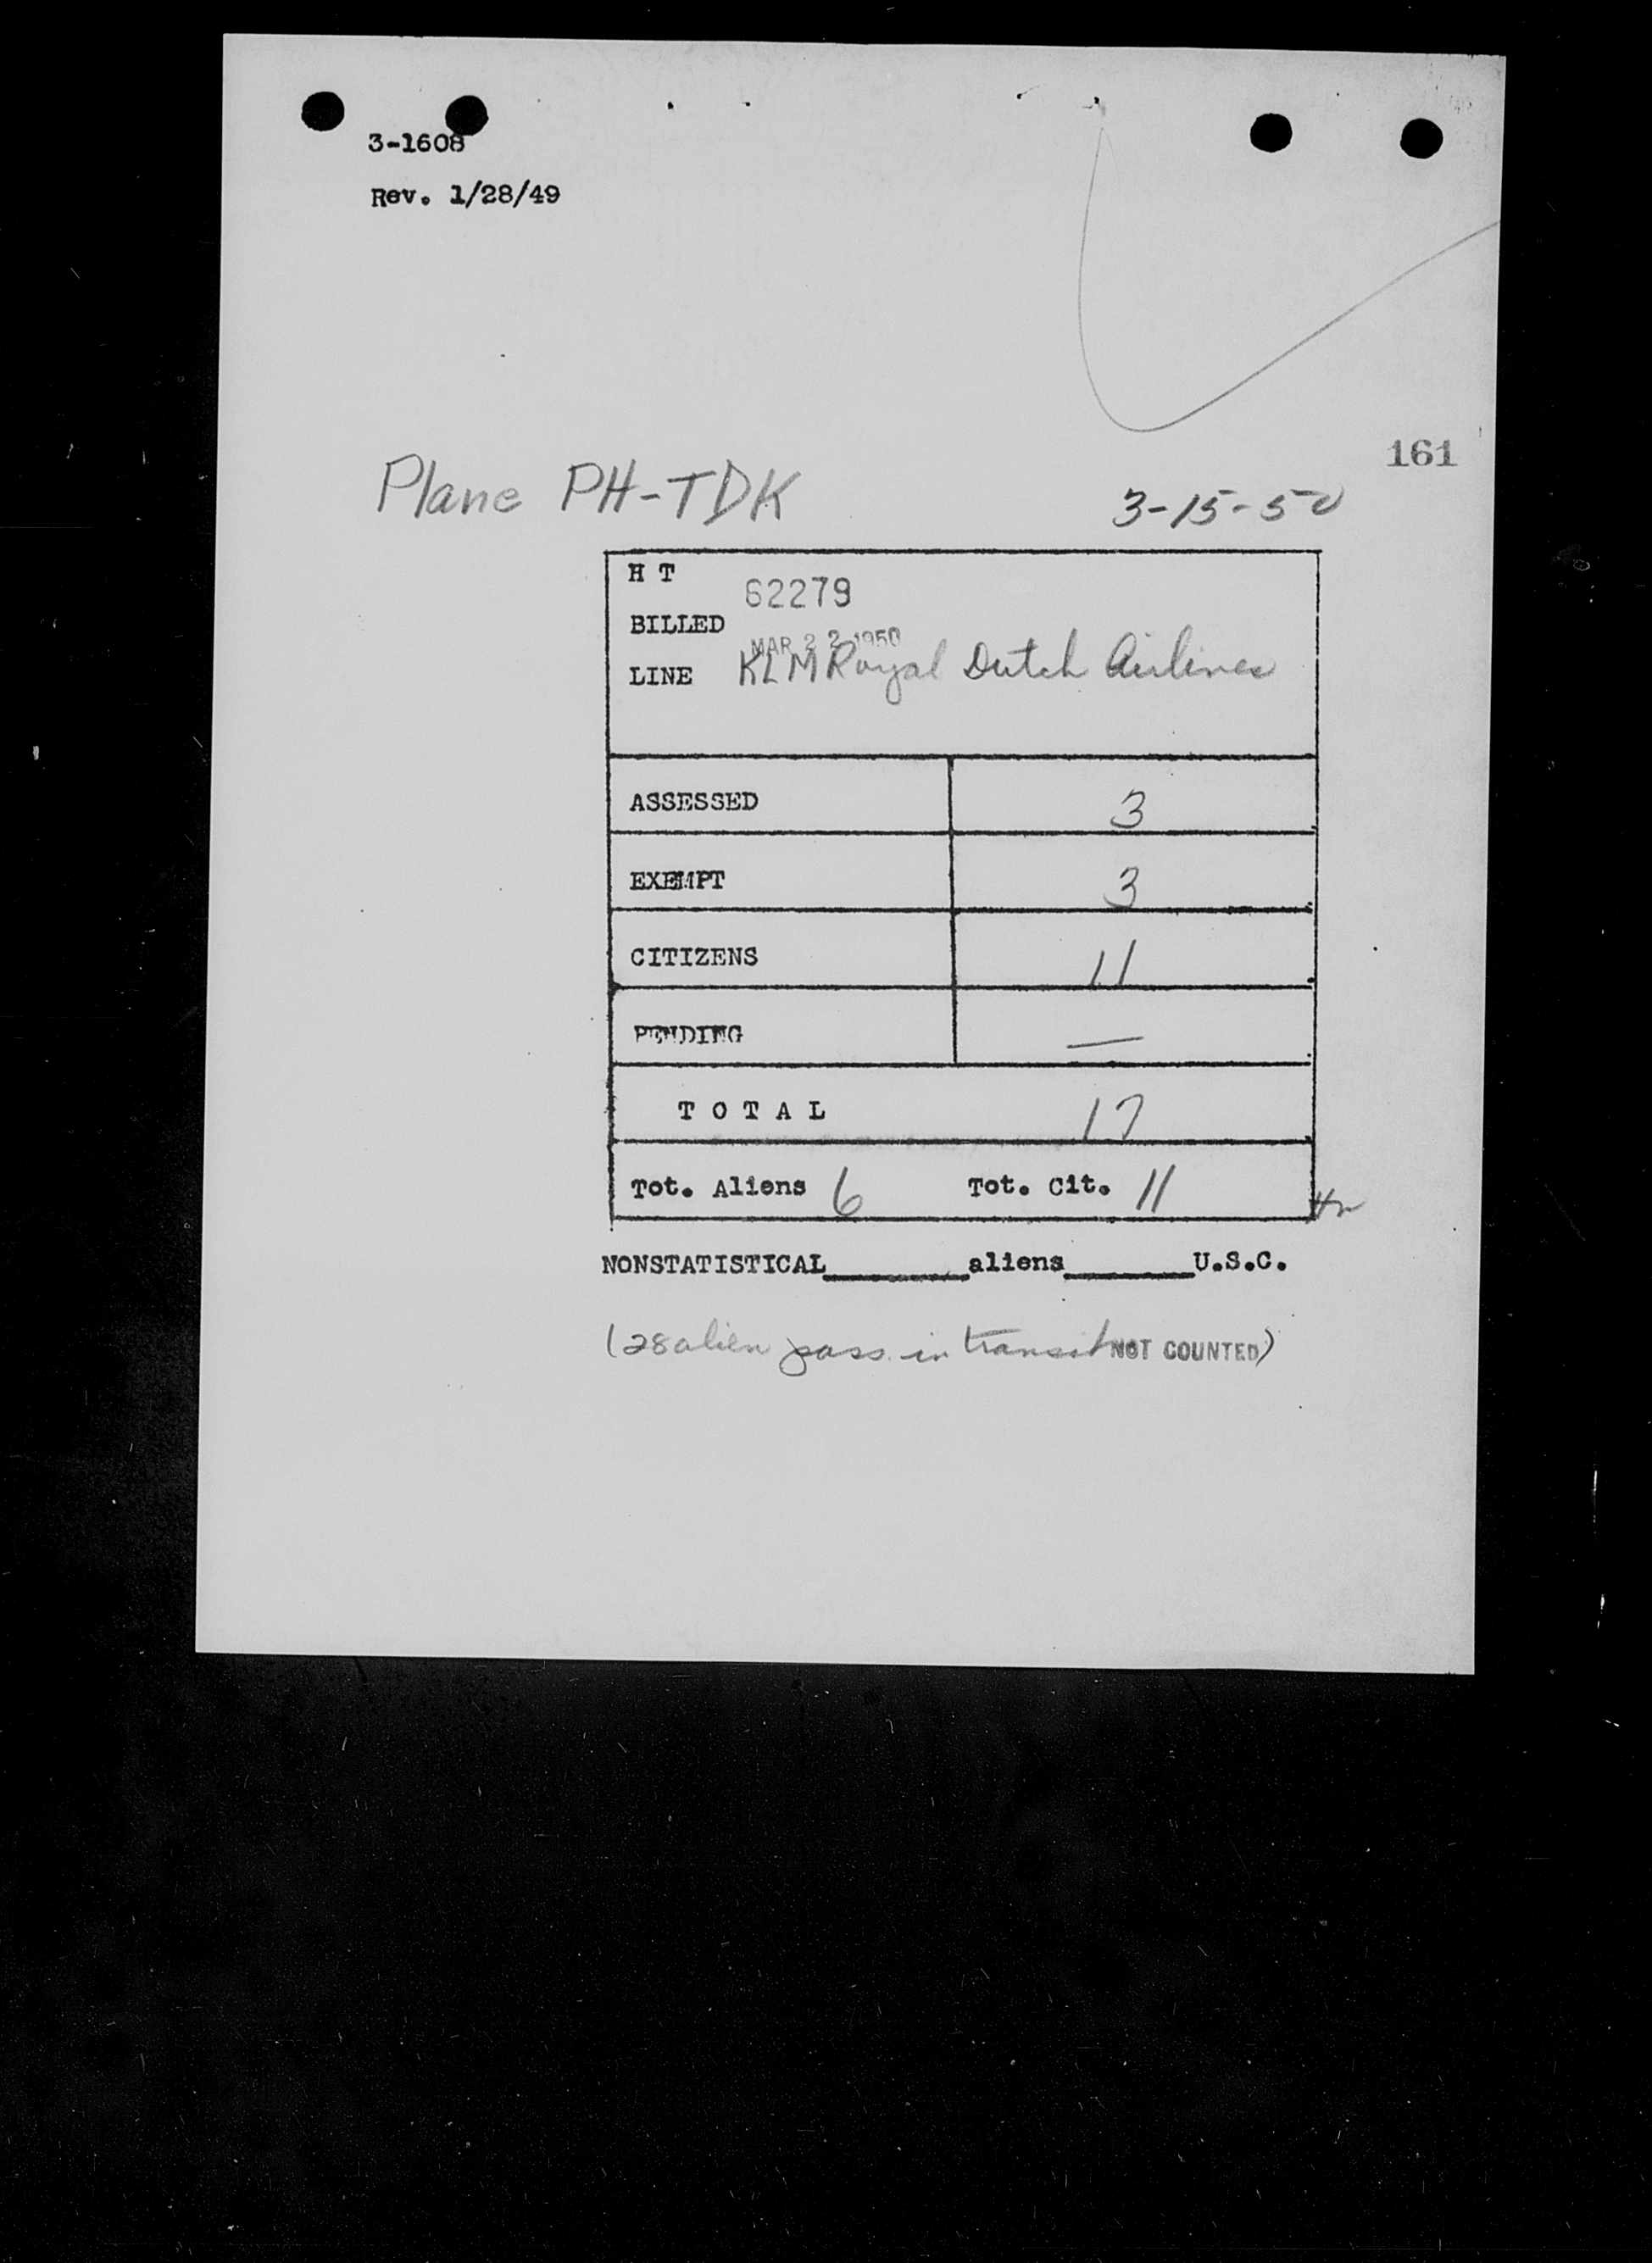 3-1608
Rev. 1/28/49
161
Plane PH-TDK 3-15-50
H T 62279
BILLED MAR 22 1950
LINE KLM Royal Dutch Airlines
ASSESSED 3
EXEMPT 3
CITIZENS 11
PENDING —
TOTAL 17
Tot. Aliens 6 Tot. Cit. 11
NONSTATISTICAL________aliens_______U.S.C.
(28 alien pass. in transit NOT COUNTED)